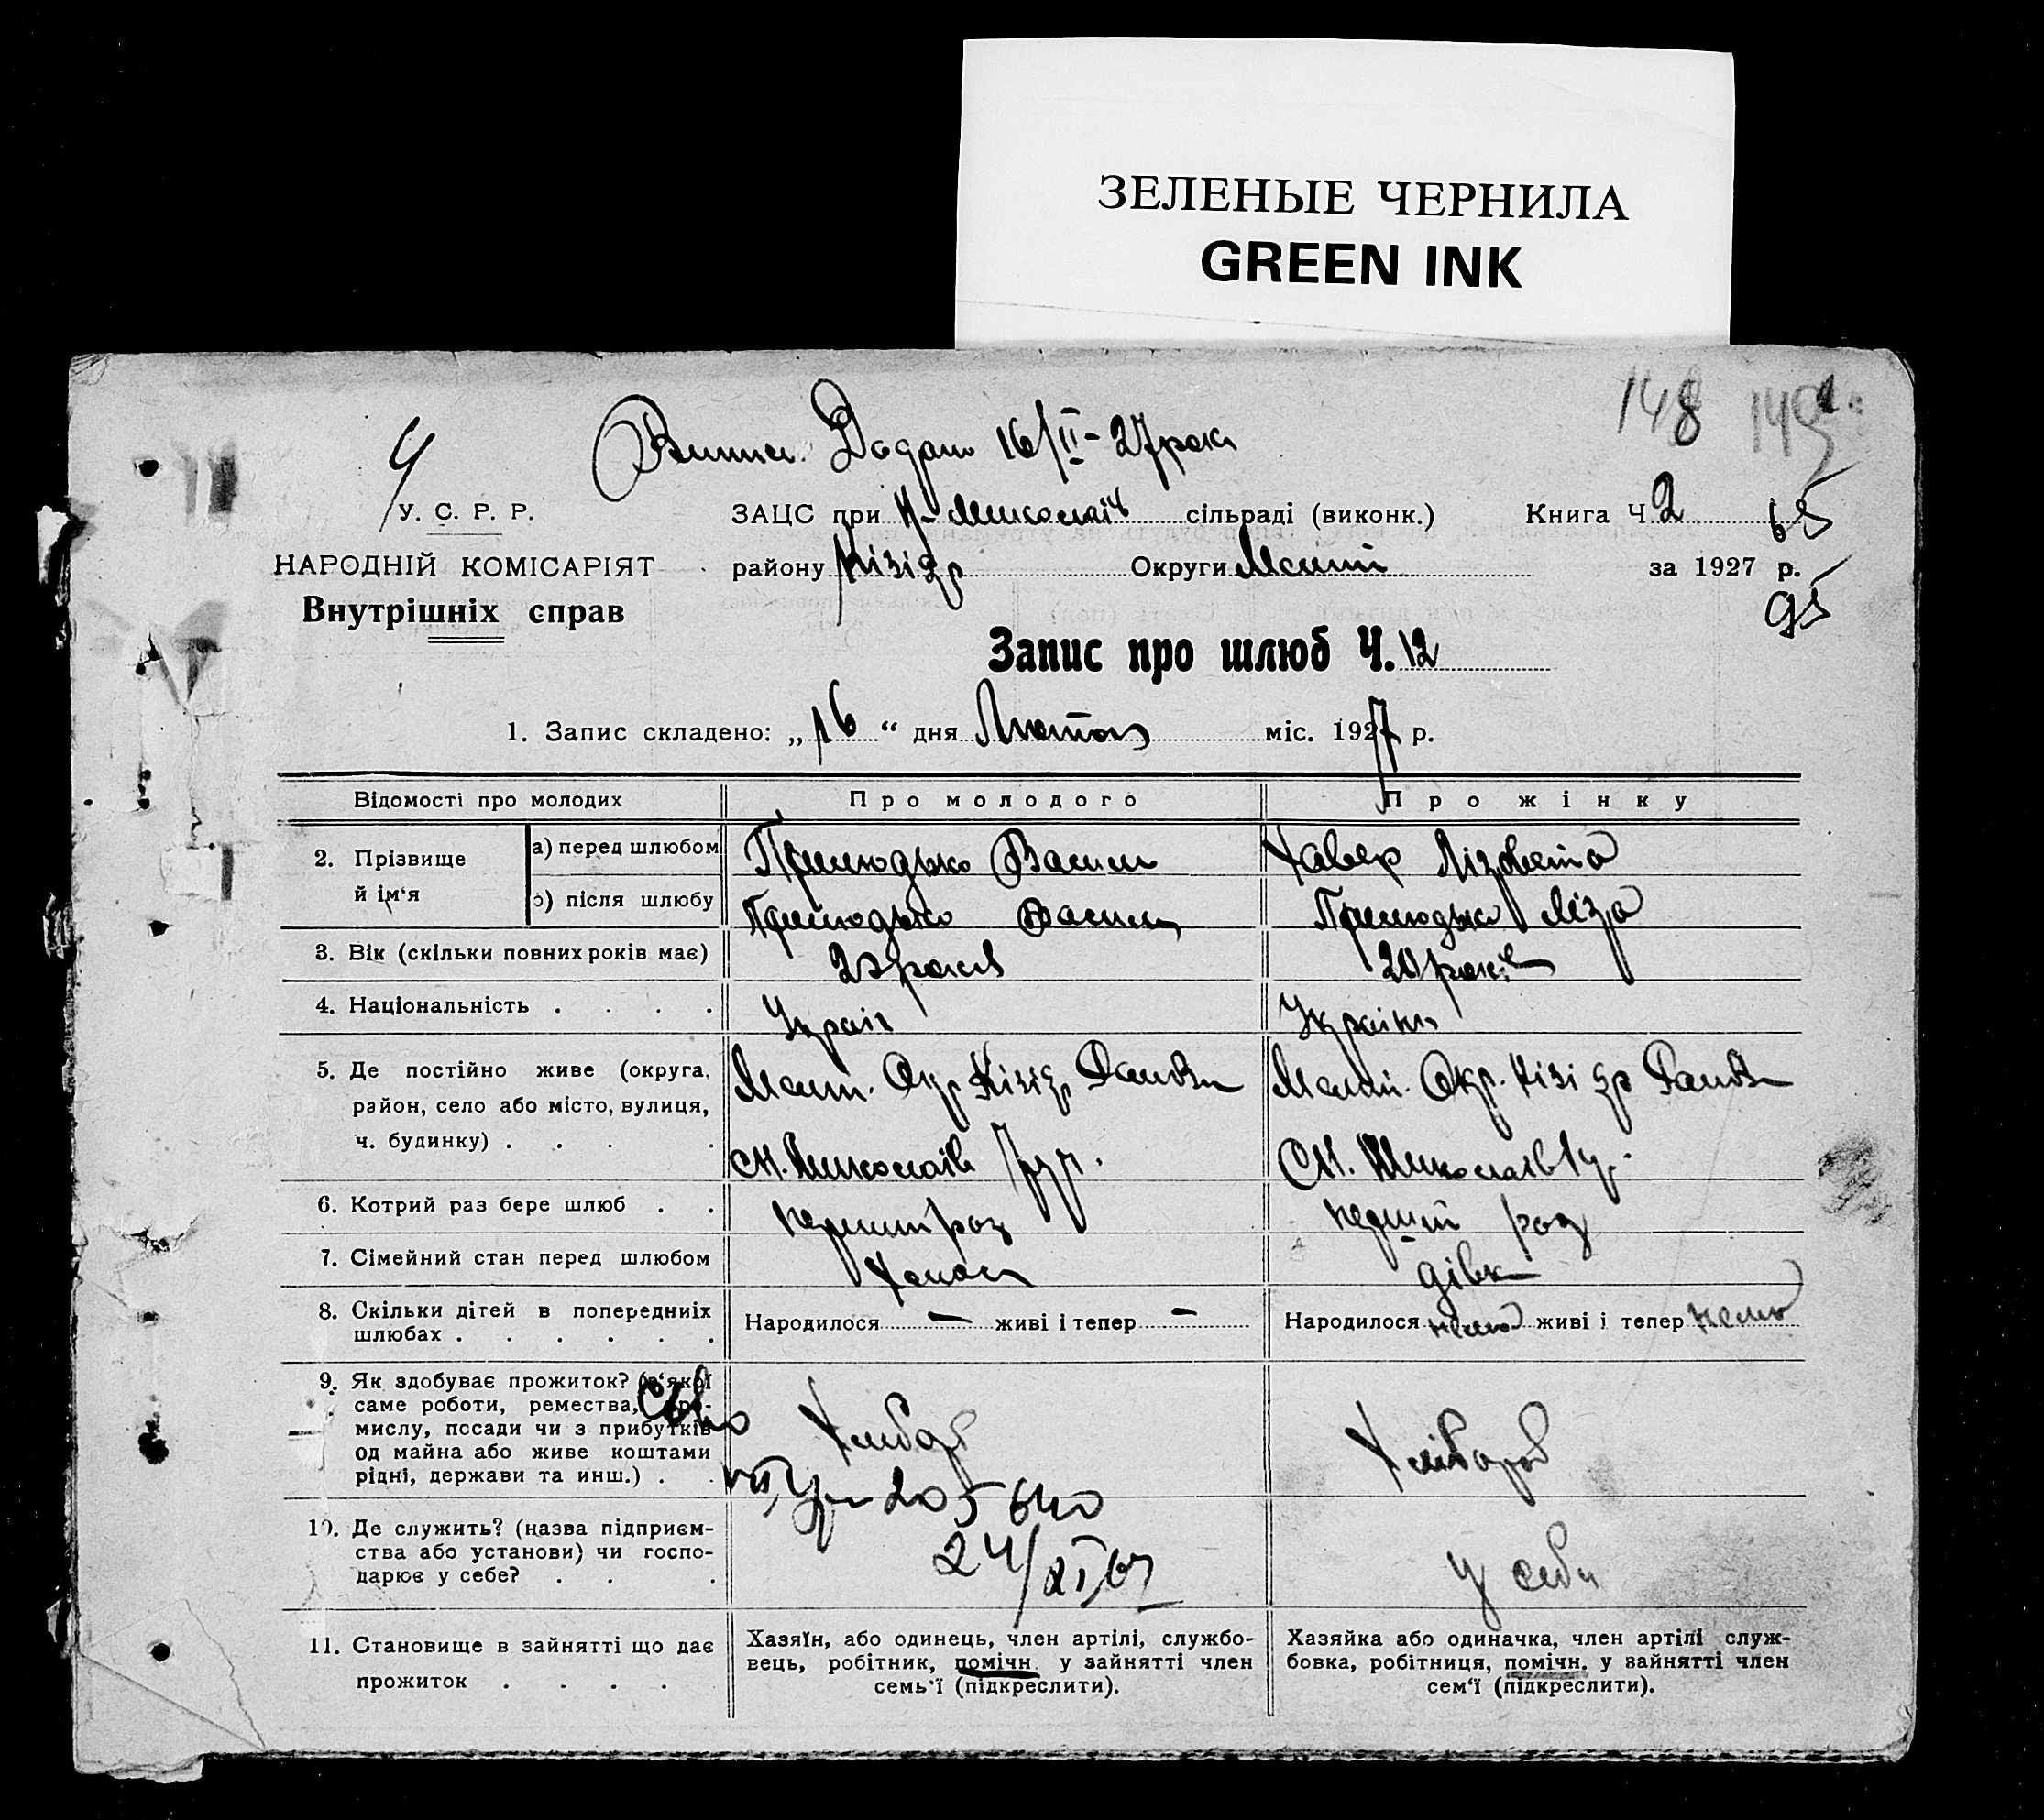 ЗЕЛЕНЫЕ ЧЕРНИЛА
GREEN INK
148
4 16/II-27 рок
У. С. Р. Р.
ЗАЦС при Н-Миколаїв сільраді (виконк.) Книга Ч 2
65
НАРОДНІЙ КОМІСАРІЯТ
району Кізідр Округи Меліт за 1927 р.
95
Внутрішніх справ
Запис про шлюб Ч. 12
1. Запис складено: „16“ дня Лютого міс. 1927 р.
Відомості про молодих Про молодого Про жінку
2. Прізвище й ім'я
а) перед шлюбом Василь Лізовета
б) після шлюбу Василь Ліза
3. Вік (скільки повних років має) років 20 років
4. Національність . . . . Україн Українк
5. Де постійно живе (округа, Меліт. Окр. Кізідр Меліт. Окр. Кізідр
район, село або місто, вулиця,
ч. будинку) . . . . с Н. Миколаїв с Н. Миколаїв
6. Котрий раз бере шлюб . . перший раз перший раз
7. Сімейний стан перед шлюбом Холост дівк
8. Скільки дітей в попередниіх Народилося — живі і тепер — Народилося нема живі і тепер нема
шлюбах . . . . . .
9. Як здобуває прожиток? (з'якої
саме роботи, ремества, про-
мислу, посади чи з прибутків Хлібороб Хлібороб
од майна або живе коштами
рідні, держави та инш.) . .
205640
10. Де служить? (назва підприєм-
ства або установи) чи госпо- 24/XI 67 у себе
дарює у себе? . . .
11. Становище в зайнятті що дає
прожиток . . . .
Хазяїн, або одинець, член артілі, службо-
вець, робітник, помічн. у зайнятті член
семь'ї (підкреслити).
Хазяйка або одиначка, член артілі служ-
бовка, робітниця, помічн. у зайнятті член
сем'ї (підкреслити).